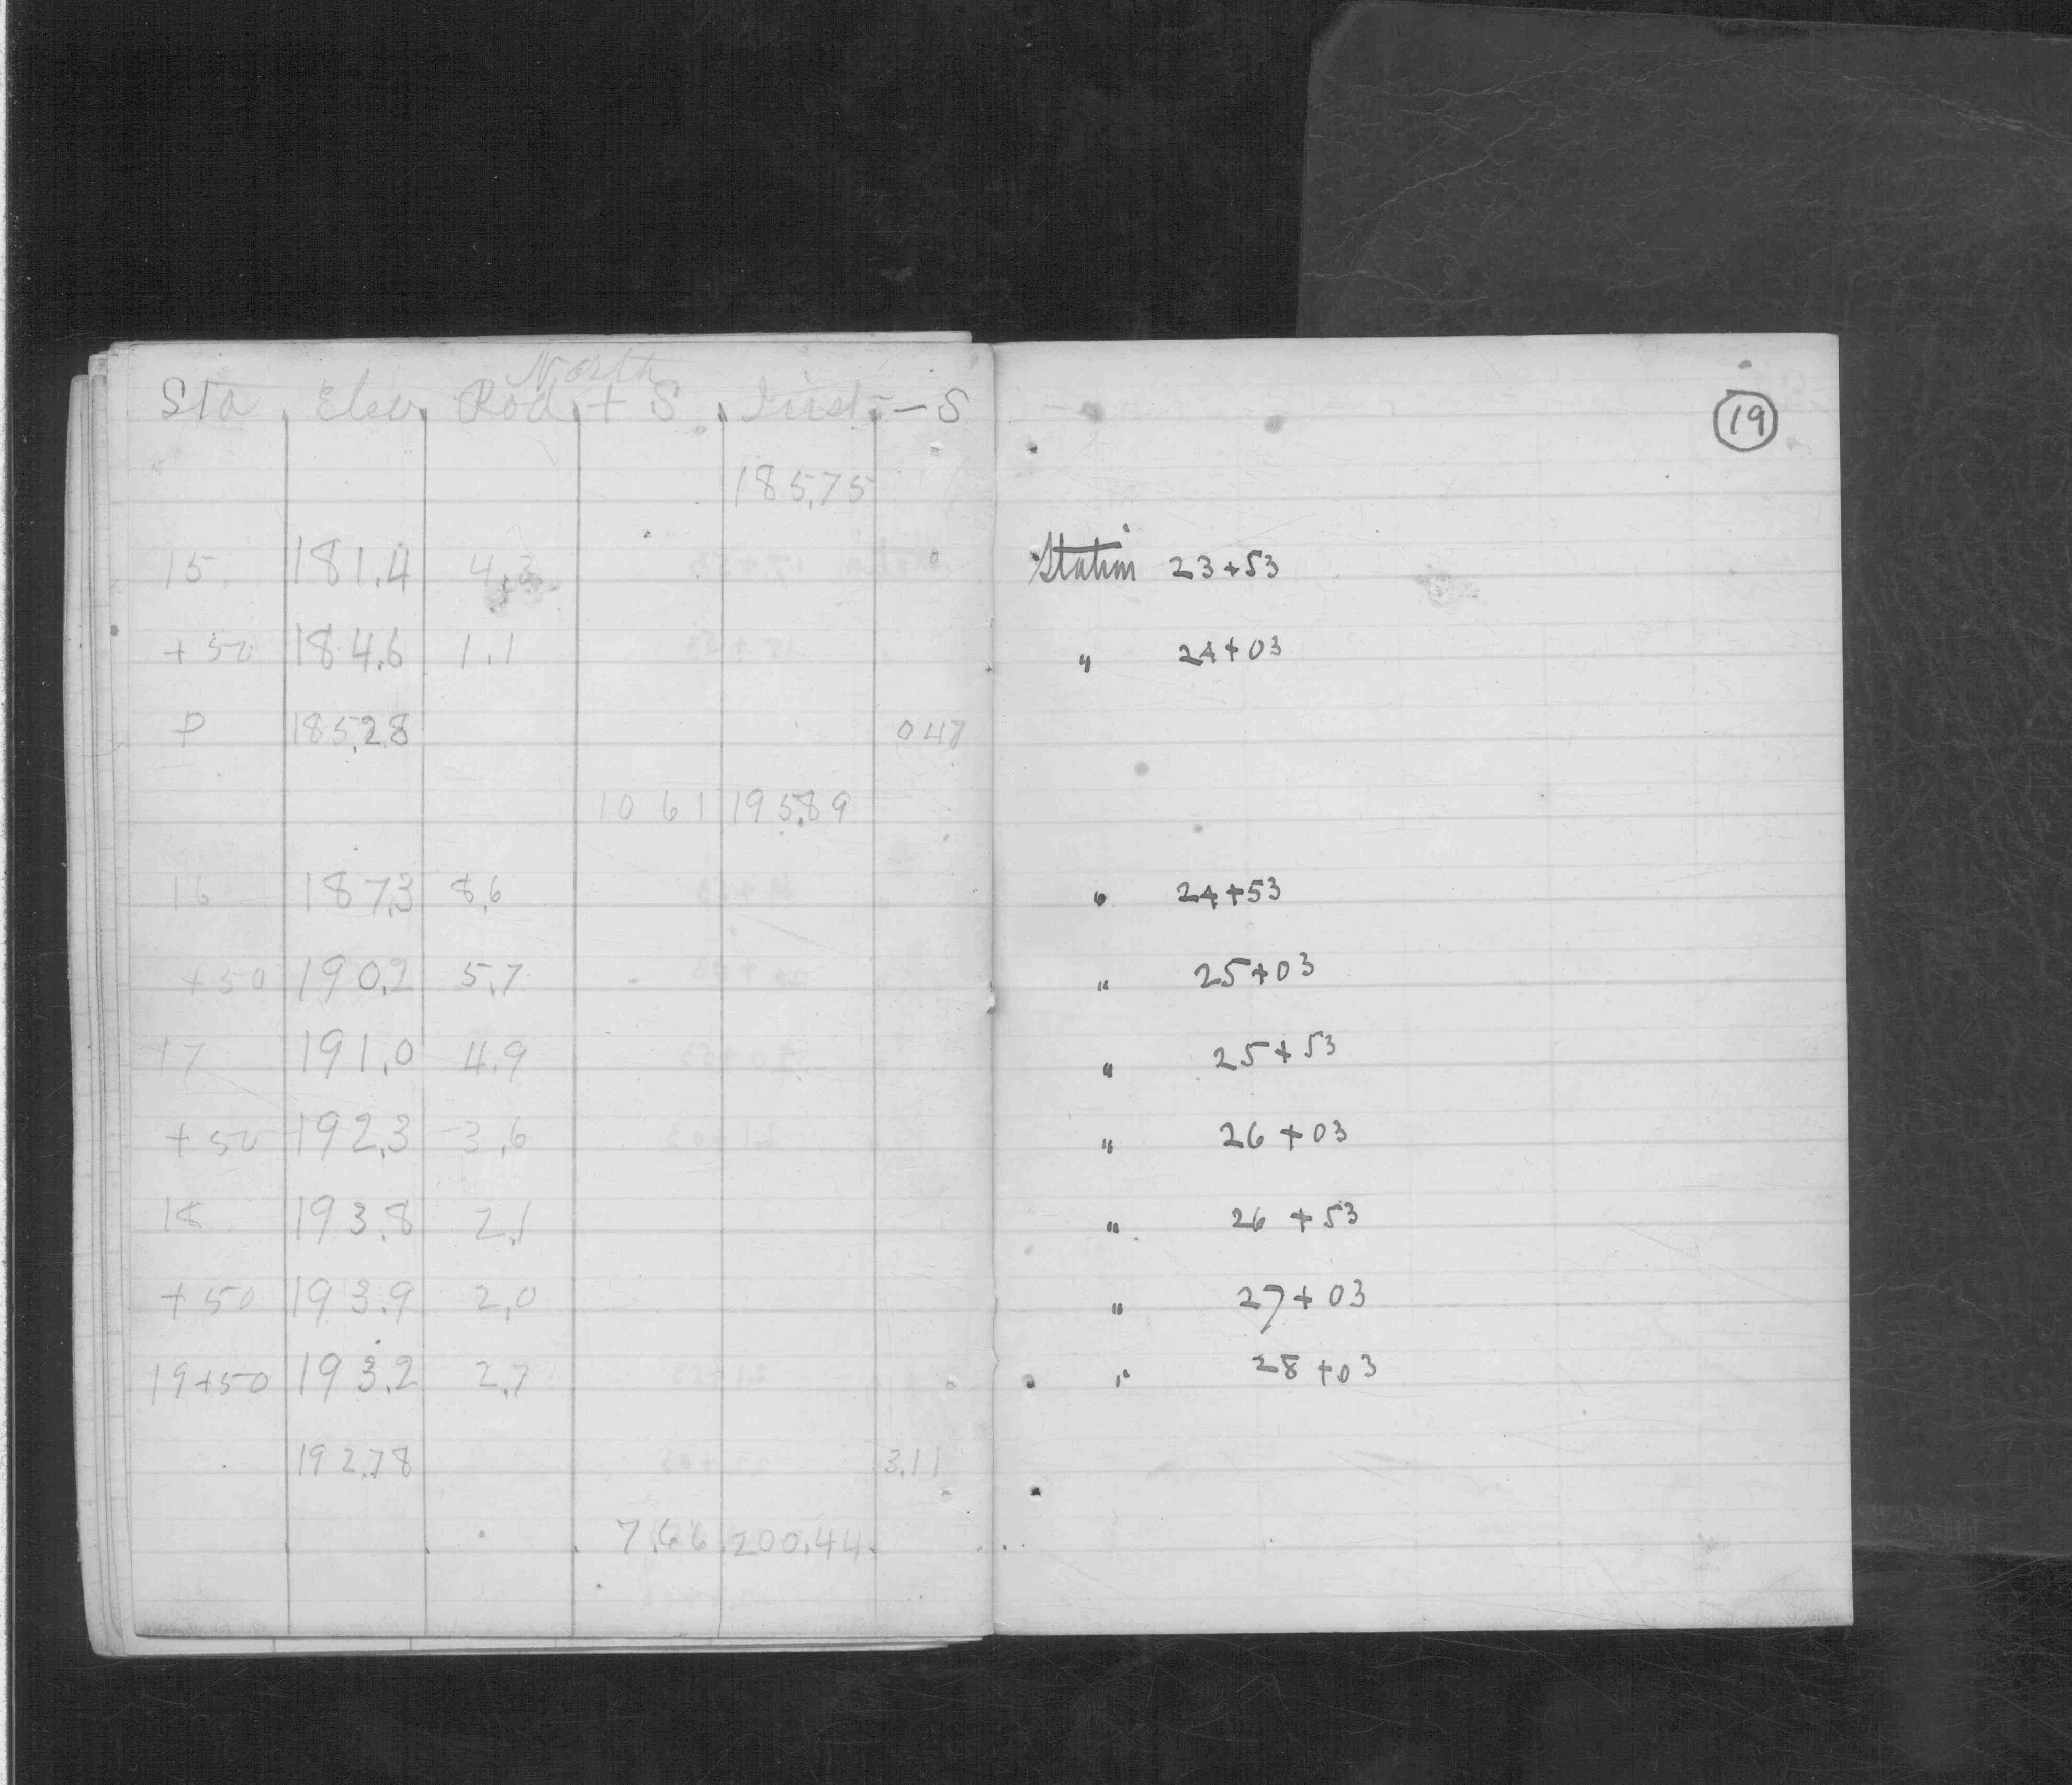 North
Sta Elev Rod + S Inst - S
185.75
15 181.4 4.3
+50 184.6 1.1
P 185.28 0 47
10 61 195.89
16 187.3 8.6
+50 190.2 5.7
17 191.0 4.9
+50 192.3 3.6
18 193.8 2.1
+50 193.9 2.0
19+50 193.2 2.7
192.78 3.11
7.66 200.44
19
Station 23+53
" 24+03
" 24+53
" 25+03
" 25+53
" 26+03
" 26+53
" 27+03
" 28+03